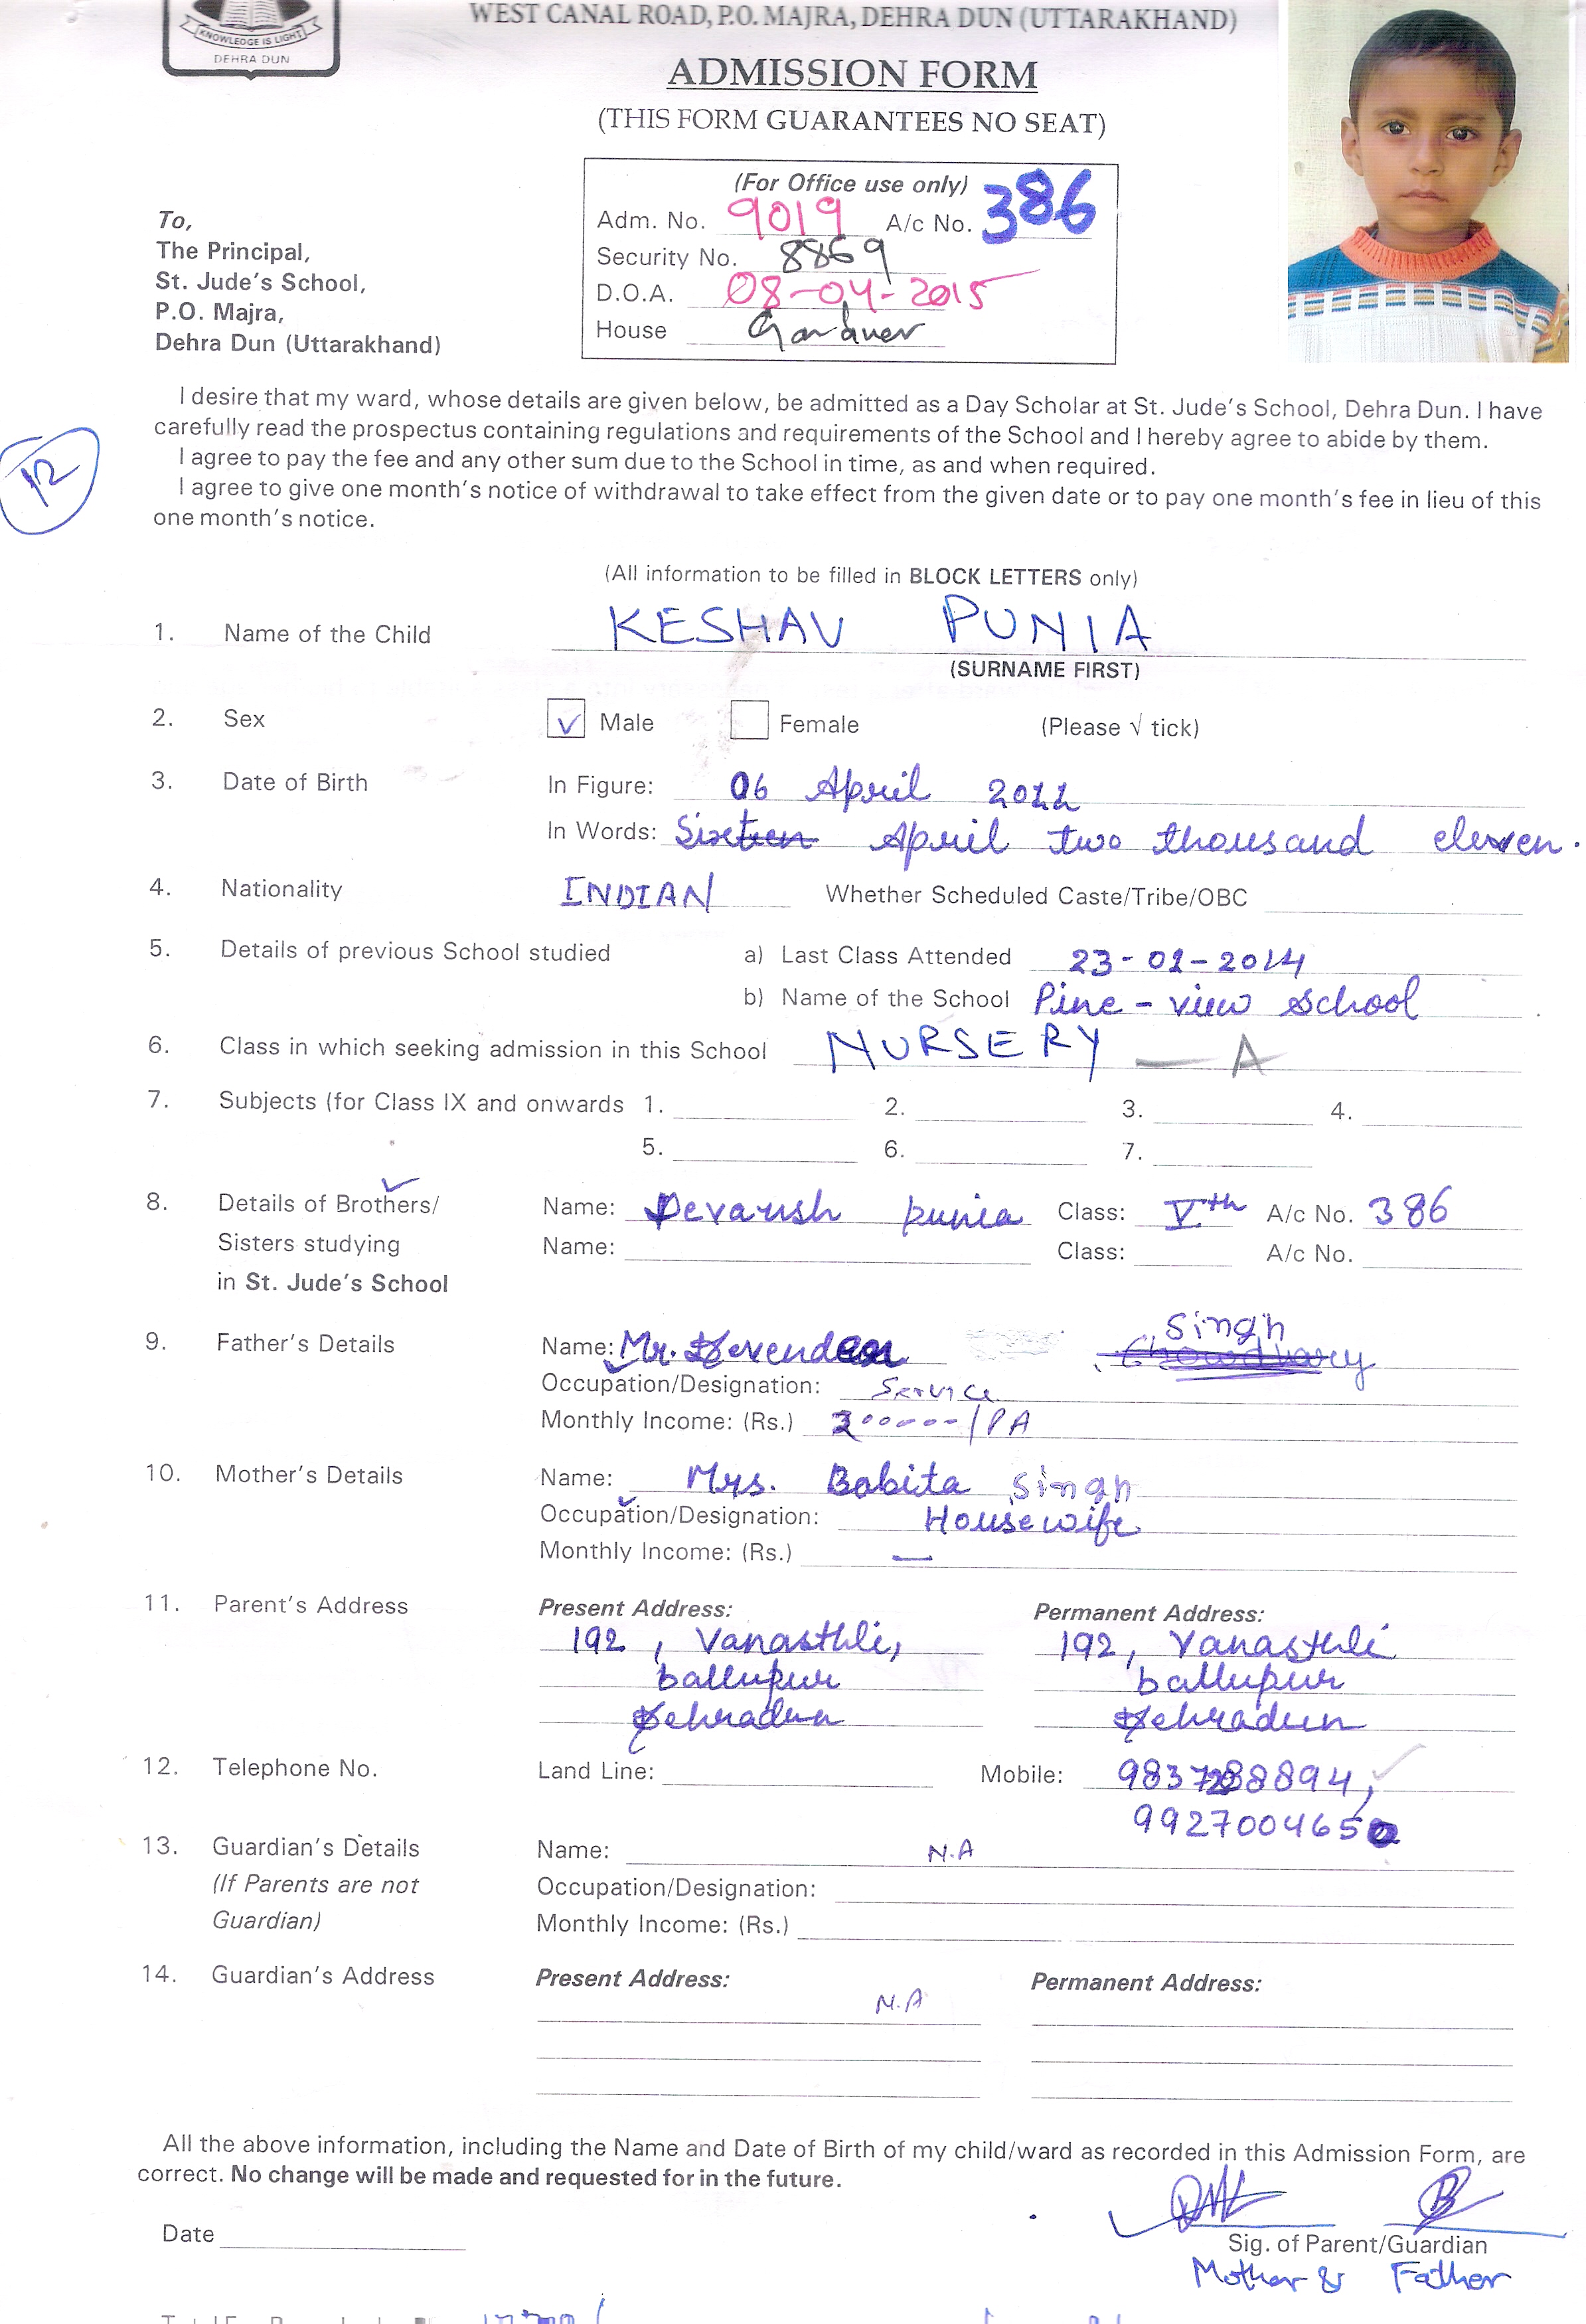 WEST CANAL ROAD, P.O. MAJRA, DEHRA DUN (UTTARAKHAND)
KNOWLEDGE IS LIGHT
DEHRA DUN
ADMISSION FORM
(THIS FORM GUARANTEES NO SEAT)
(For Office use only)
Adm. No. 9019 A/c No. 386
Security No. 8869
D.O.A. 08-04-2015
House Gardner
To,
The Principal,
St. Jude's School,
P.O. Majra,
Dehra Dun (Uttarakhand)
I desire that my ward, whose details are given below, be admitted as a Day Scholar at St. Jude's School, Dehra Dun. I have
carefully read the prospectus containing regulations and requirements of the School and I hereby agree to abide by them.
I agree to pay the fee and any other sum due to the School in time, as and when required.
I agree to give one month's notice of withdrawal to take effect from the given date or to pay one month's fee in lieu of this
one month's notice.
12
(All information to be filled in BLOCK LETTERS only)
1. Name of the Child KESHAV PUNIA
(SURNAME FIRST)
2. Sex Male Female (Please √ tick)
3. Date of Birth In Figure: 06 April 2011
In Words: Sixteen April two thousand eleven.
4. Nationality INDIAN Whether Scheduled Caste/Tribe/OBC
5. Details of previous School studied a) Last Class Attended 23-01-2014
b) Name of the School Pine-view School
6. Class in which seeking admission in this School NURSERY — A
7. Subjects (for Class IX and onwards 1. 2. 3. 4.
5. 6. 7.
8. Details of Brothers/ Name: Devansh punia Class: Vth A/c No. 386
Sisters studying Name: Class: A/c No.
in St. Jude's School
9. Father's Details Name: Mr. Devender Singh Chowdhary
Occupation/Designation: Service
Monthly Income: (Rs.) 300000-/PA
10. Mother's Details Name: Mrs. Babita Singh
Occupation/Designation: Housewife
Monthly Income: (Rs.) —
11. Parent's Address Present Address: Permanent Address:
192, Vanasthli, 192, Vanasthli
ballupur ballupur
Dehradun Dehradun
12. Telephone No. Land Line: Mobile: 9837288894,
9927004650
13. Guardian's Details Name: N.A
(If Parents are not Occupation/Designation:
Guardian) Monthly Income: (Rs.)
14. Guardian's Address Present Address: Permanent Address:
N.A
All the above information, including the Name and Date of Birth of my child/ward as recorded in this Admission Form, are
correct. No change will be made and requested for in the future.
Date
Sig. of Parent/Guardian
Mother & Father